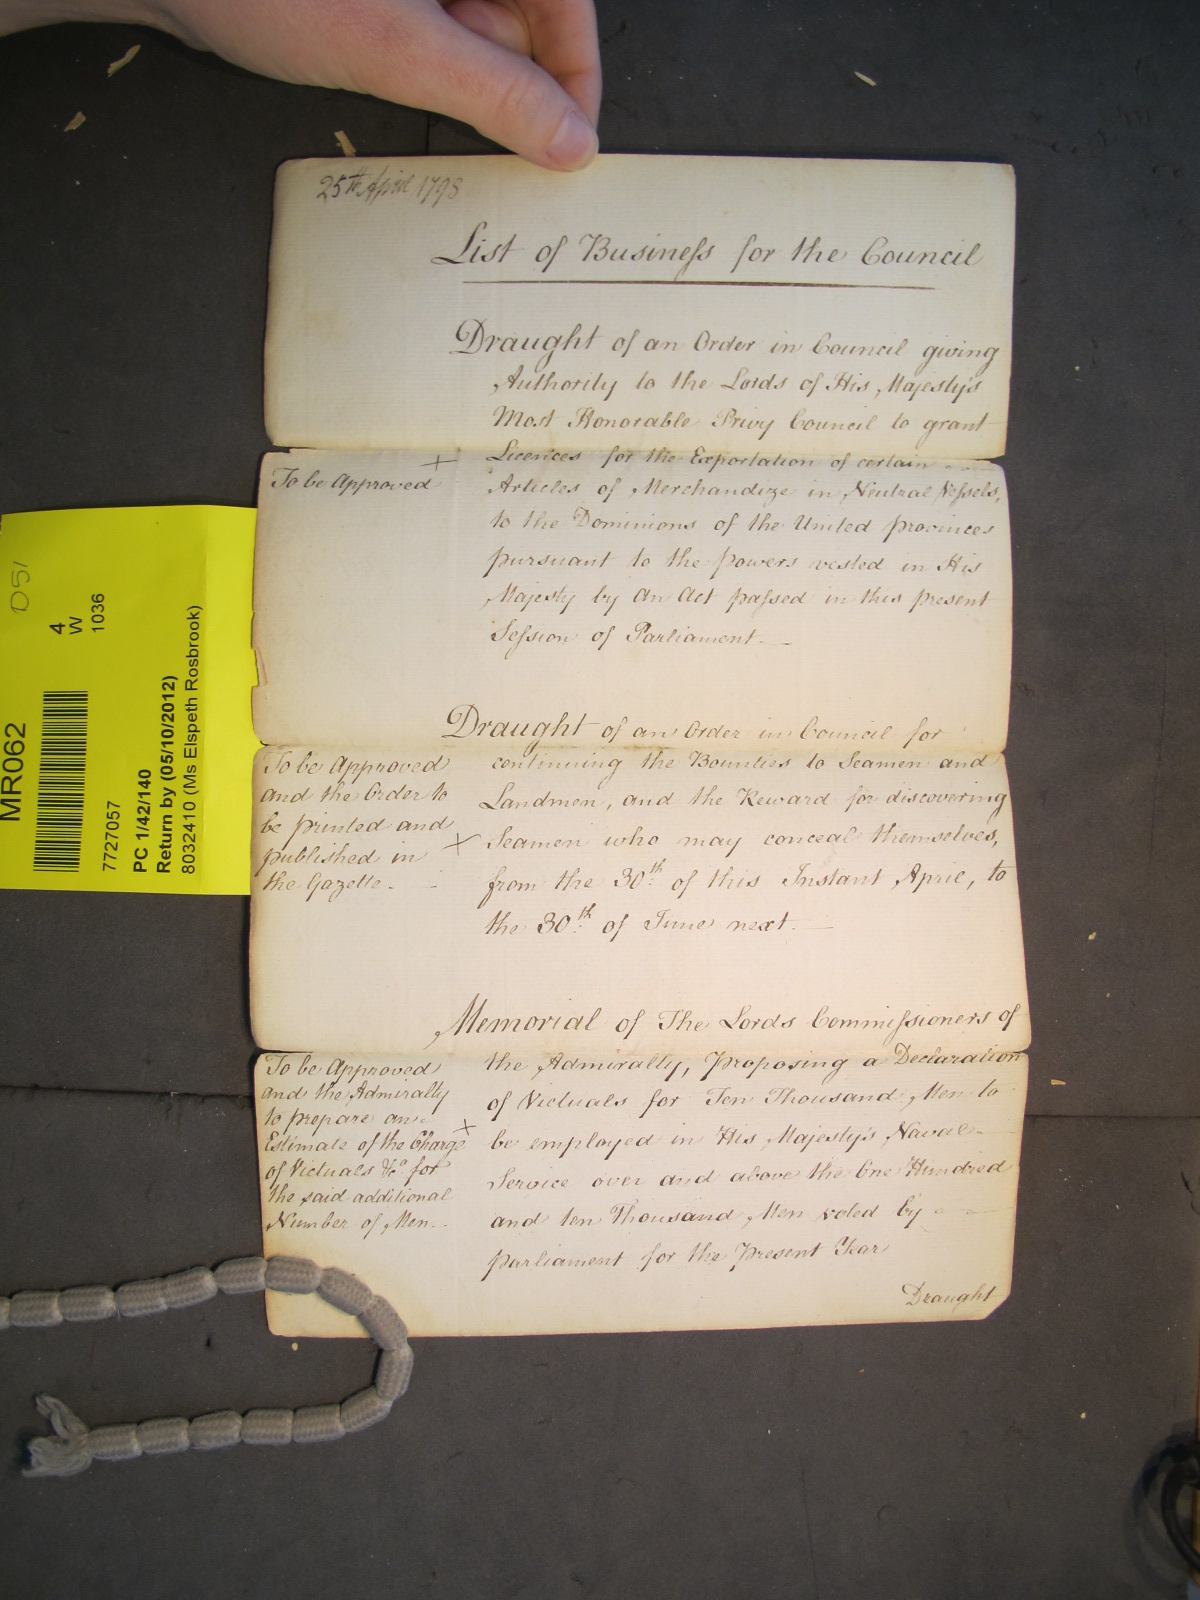 25th April 1798
List of Business for the Council
Draught of an Order in Council giving
Authority to the Lords of His Majesty's
Most Honorable Privy Council to grant
Licences for the Exportation of certain
To be Approved +
Articles of Merchandize in Neutral Vessels,
to the Dominions of the United provinces
pursuant to the powers vested in His
Majesty by an Act passed in this present
Session of Parliament.
Draught of an Order in Council for
continuing the Bounties to Seamen and
Landmen, and the Reward for discovering
Seamen who may conceal themselves,
from the 30th of this Instant April, to
the 30th of June next.
To be Approved
and the Order to
be printed and
published in ×
the Gazette.
Memorial of The Lords Commissioners of
the Admiralty, proposing a Declaration
of Victuals for Ten Thousand Men to
be employed in His Majesty's Naval
Service over and above the One Hundred
and ten Thousand Men voted by
parliament for the present Year
To be Approved
and the Admiralty
to prepare an ×
Estimate of the Charge
of Victuals &ca for
the said additional
Number of Men.
Draught
MR062
D51
4
W
1036
7727057
PC 1/42/140
Return by (05/10/2012)
8032410 (Ms Elspeth Rosbrook)